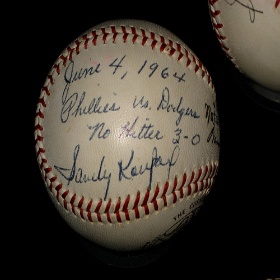 June 4, 1964
Phillies vs. Dodgers
No Hitter 3-0
Sandy Koufax
THE